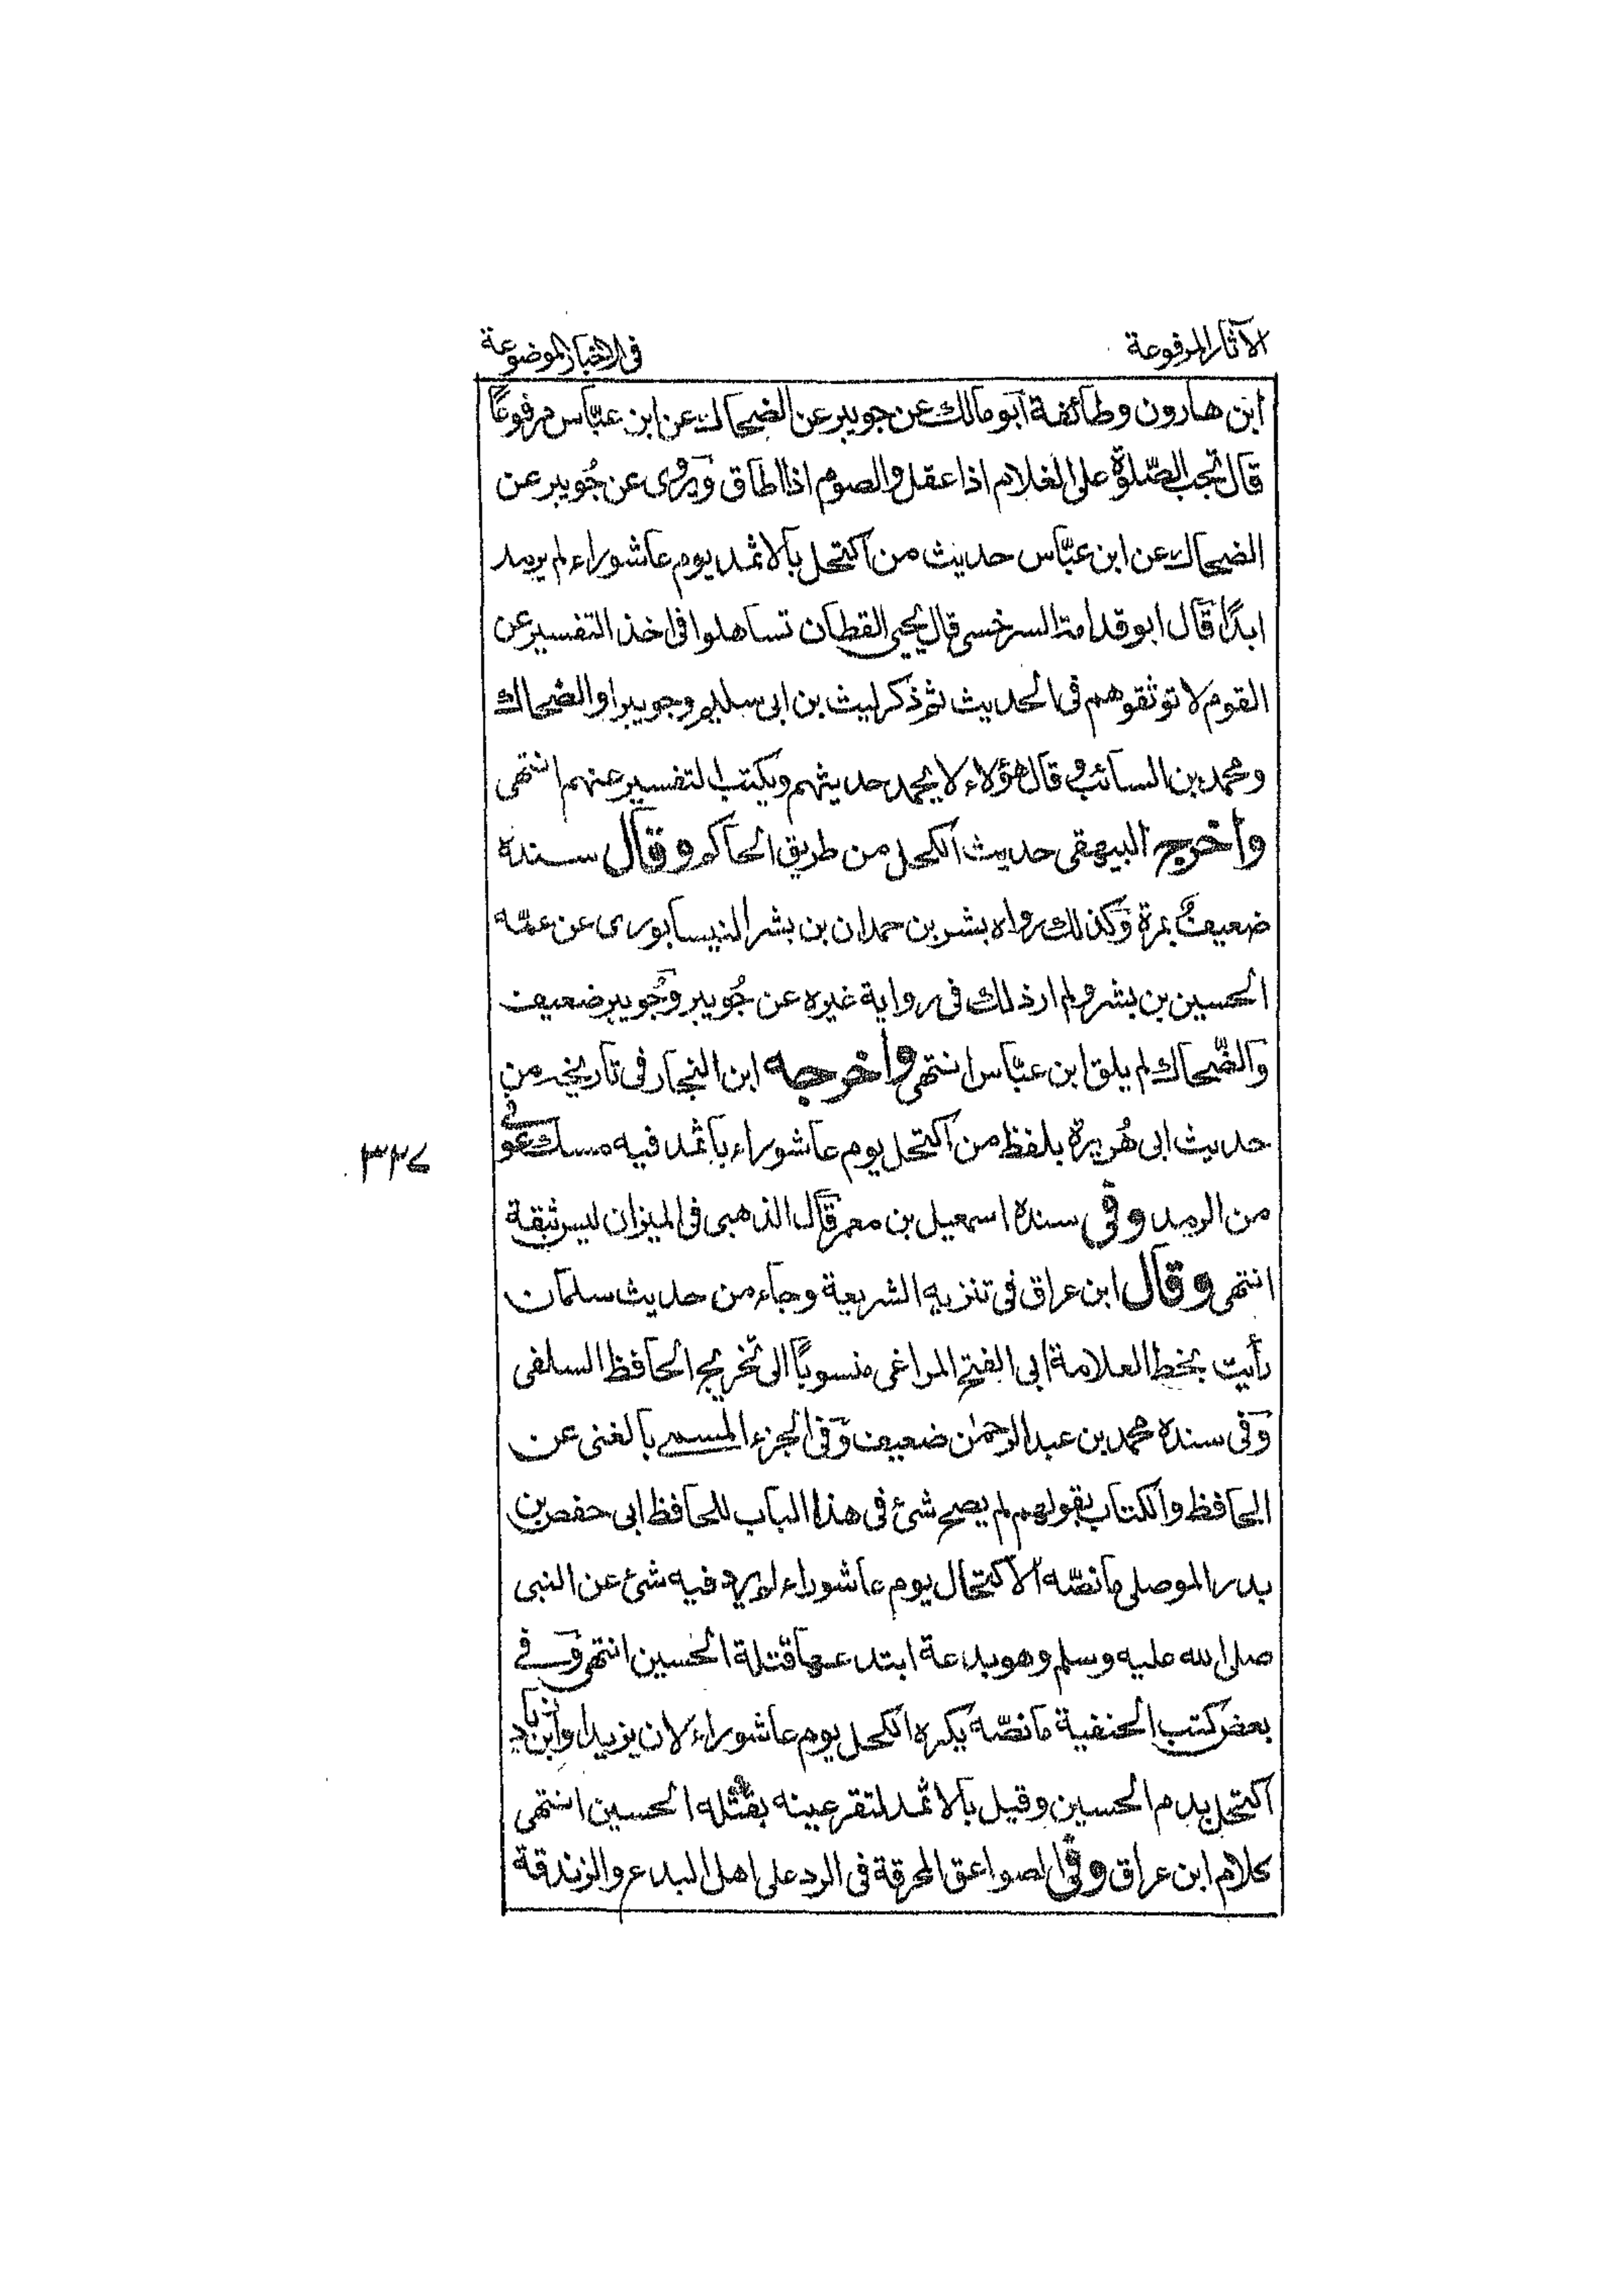 الآثار المرفوعة
فى الاخبار الموضوعة
ابن هارون وطائفة ابو مالك عن جويبر عن الضحاك عن ابن عبّاس مرفوعًا
قال تجب الصّلوة على الغلام اذا عقل والصوم اذا اطاق ويروى عن جُويبر عن
الضحاك عن ابن عبّاس حديث من اكتحل بالاثمد يوم عاشوراء لم يرمد
ابدًا قال ابو قدامة السرخسى قال يحيى القطان تساهلوا فى اخذ التفسير عن
القوم لا توثقوهم فى الحديث ثم ذكر ليث بن ابى سليم وجويبرا والضحاك
ومحمد بن السائب وقال هؤلاء لا يحمد حديثهم ويكتب التفسير عنهم انتهى
واخرج البيهقى حديث الكحل من طريق الحاكم وقال سنده
ضعيفٌ بمرة وكذلك رواه بشر بن حمدان بن بشر النيسابورى عن عمّه
الحسين بن بشر ولم ار ذلك فى رواية غيره عن جُويبر وجُويبر ضعيف
والضّحاك لم يلق ابن عبّاس انتهى واخرجه ابن النجار فى تاريخه من
حديث ابى هُريرة بلفظ من اكتحل يوم عاشوراء باثمد فيه مسك عوفى
من الرمد وفى سنده اسمعيل بن معمر قال الذهبى فى الميزان ليس بثقة
انتهى وقال ابن عراق فى تنزيه الشريعة وجاء من حديث سلمان
رأيت بخط العلامة ابى الفتح المراغى منسوبًا الى تخريج الحافظ السلفى
وفى سنده محمد بن عبد الرحمٰن ضعيف وفى الجزء المسمى بالغنى عن
الحافظ والكتاب بقولهم لم يصح شئ فى هذا الباب للحافظ ابى حفص بن
بدر الموصلى ما نصّه الاكتحال يوم عاشوراء لم يرد فيه شئ عن النبى
صلى الله عليه وسلم وهو بدعة ابتدعها قتلة الحسين انتهى وفى
بعض كتب الحنفية ما نصّه يكره الكحل يوم عاشوراء لان يزيدا وابن زياد
اكتحل بدم الحسين وقيل بالاثمد لتقر عينه بقتله الحسين انتهى
كلام ابن عراق وفى الصواعق المحرقة فى الرد على اهل البدع والزندقة
٣٢٧